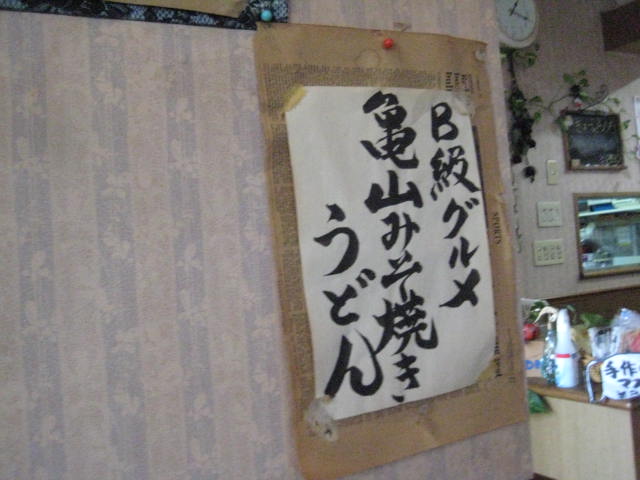 B級グルメ
亀山みそ焼き
うどん
SPORTS
手作り